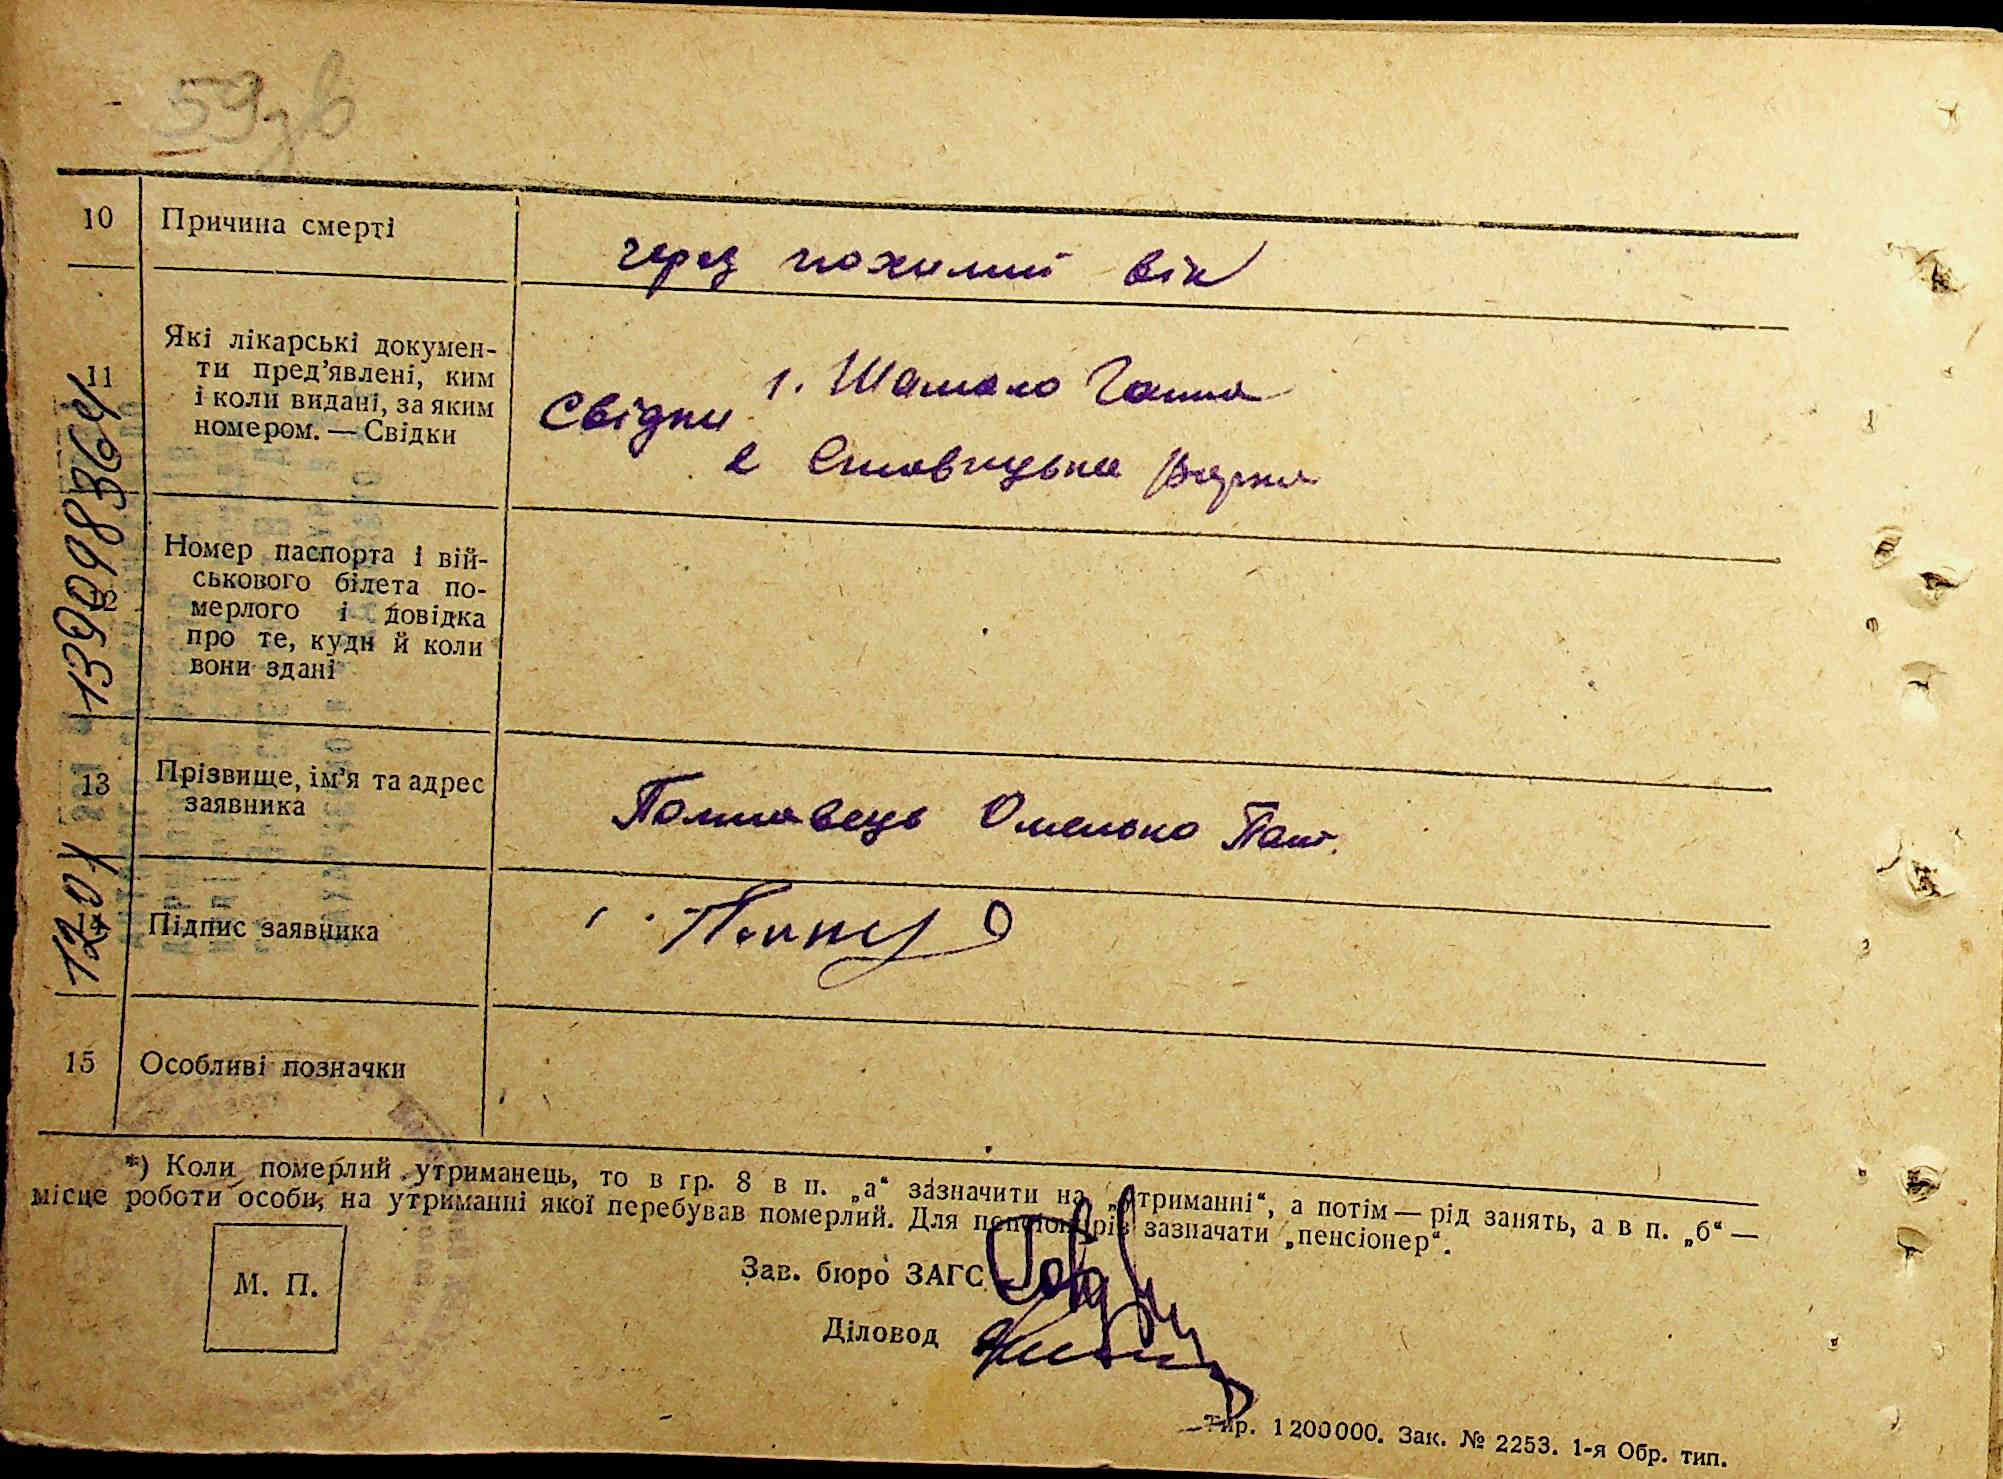 59 зв
10 Причина смерті
через похилий вік
11 Які лікарські докумен-
ти пред’явлені, ким
і коли видані, за яким
номером. — Свідки
Свідки 1. Шамало Ганна
2
12 Номер паспорта і вій-
ськового білета по-
мерлого і довідка
про те, куди й коли
вони здані
13 Прізвище, ім’я та адрес
заявника
Полтавець Омелько Пот.
Підпис заявника
15 Особливі позначки
*) Коли померлий утриманець, то в гр. 8 в п. „а“ зазначити на „утриманні“, а потім — рід занять, а в п. „б“ —
місце роботи особи, на утриманні якої перебував померлий. Для пенсіонерів зазначати „пенсіонер“.
М. П.
Зав. бюро ЗАГС
Діловод
Тир. 1200000. Зак. № 2253. 1-я Обр. тип.